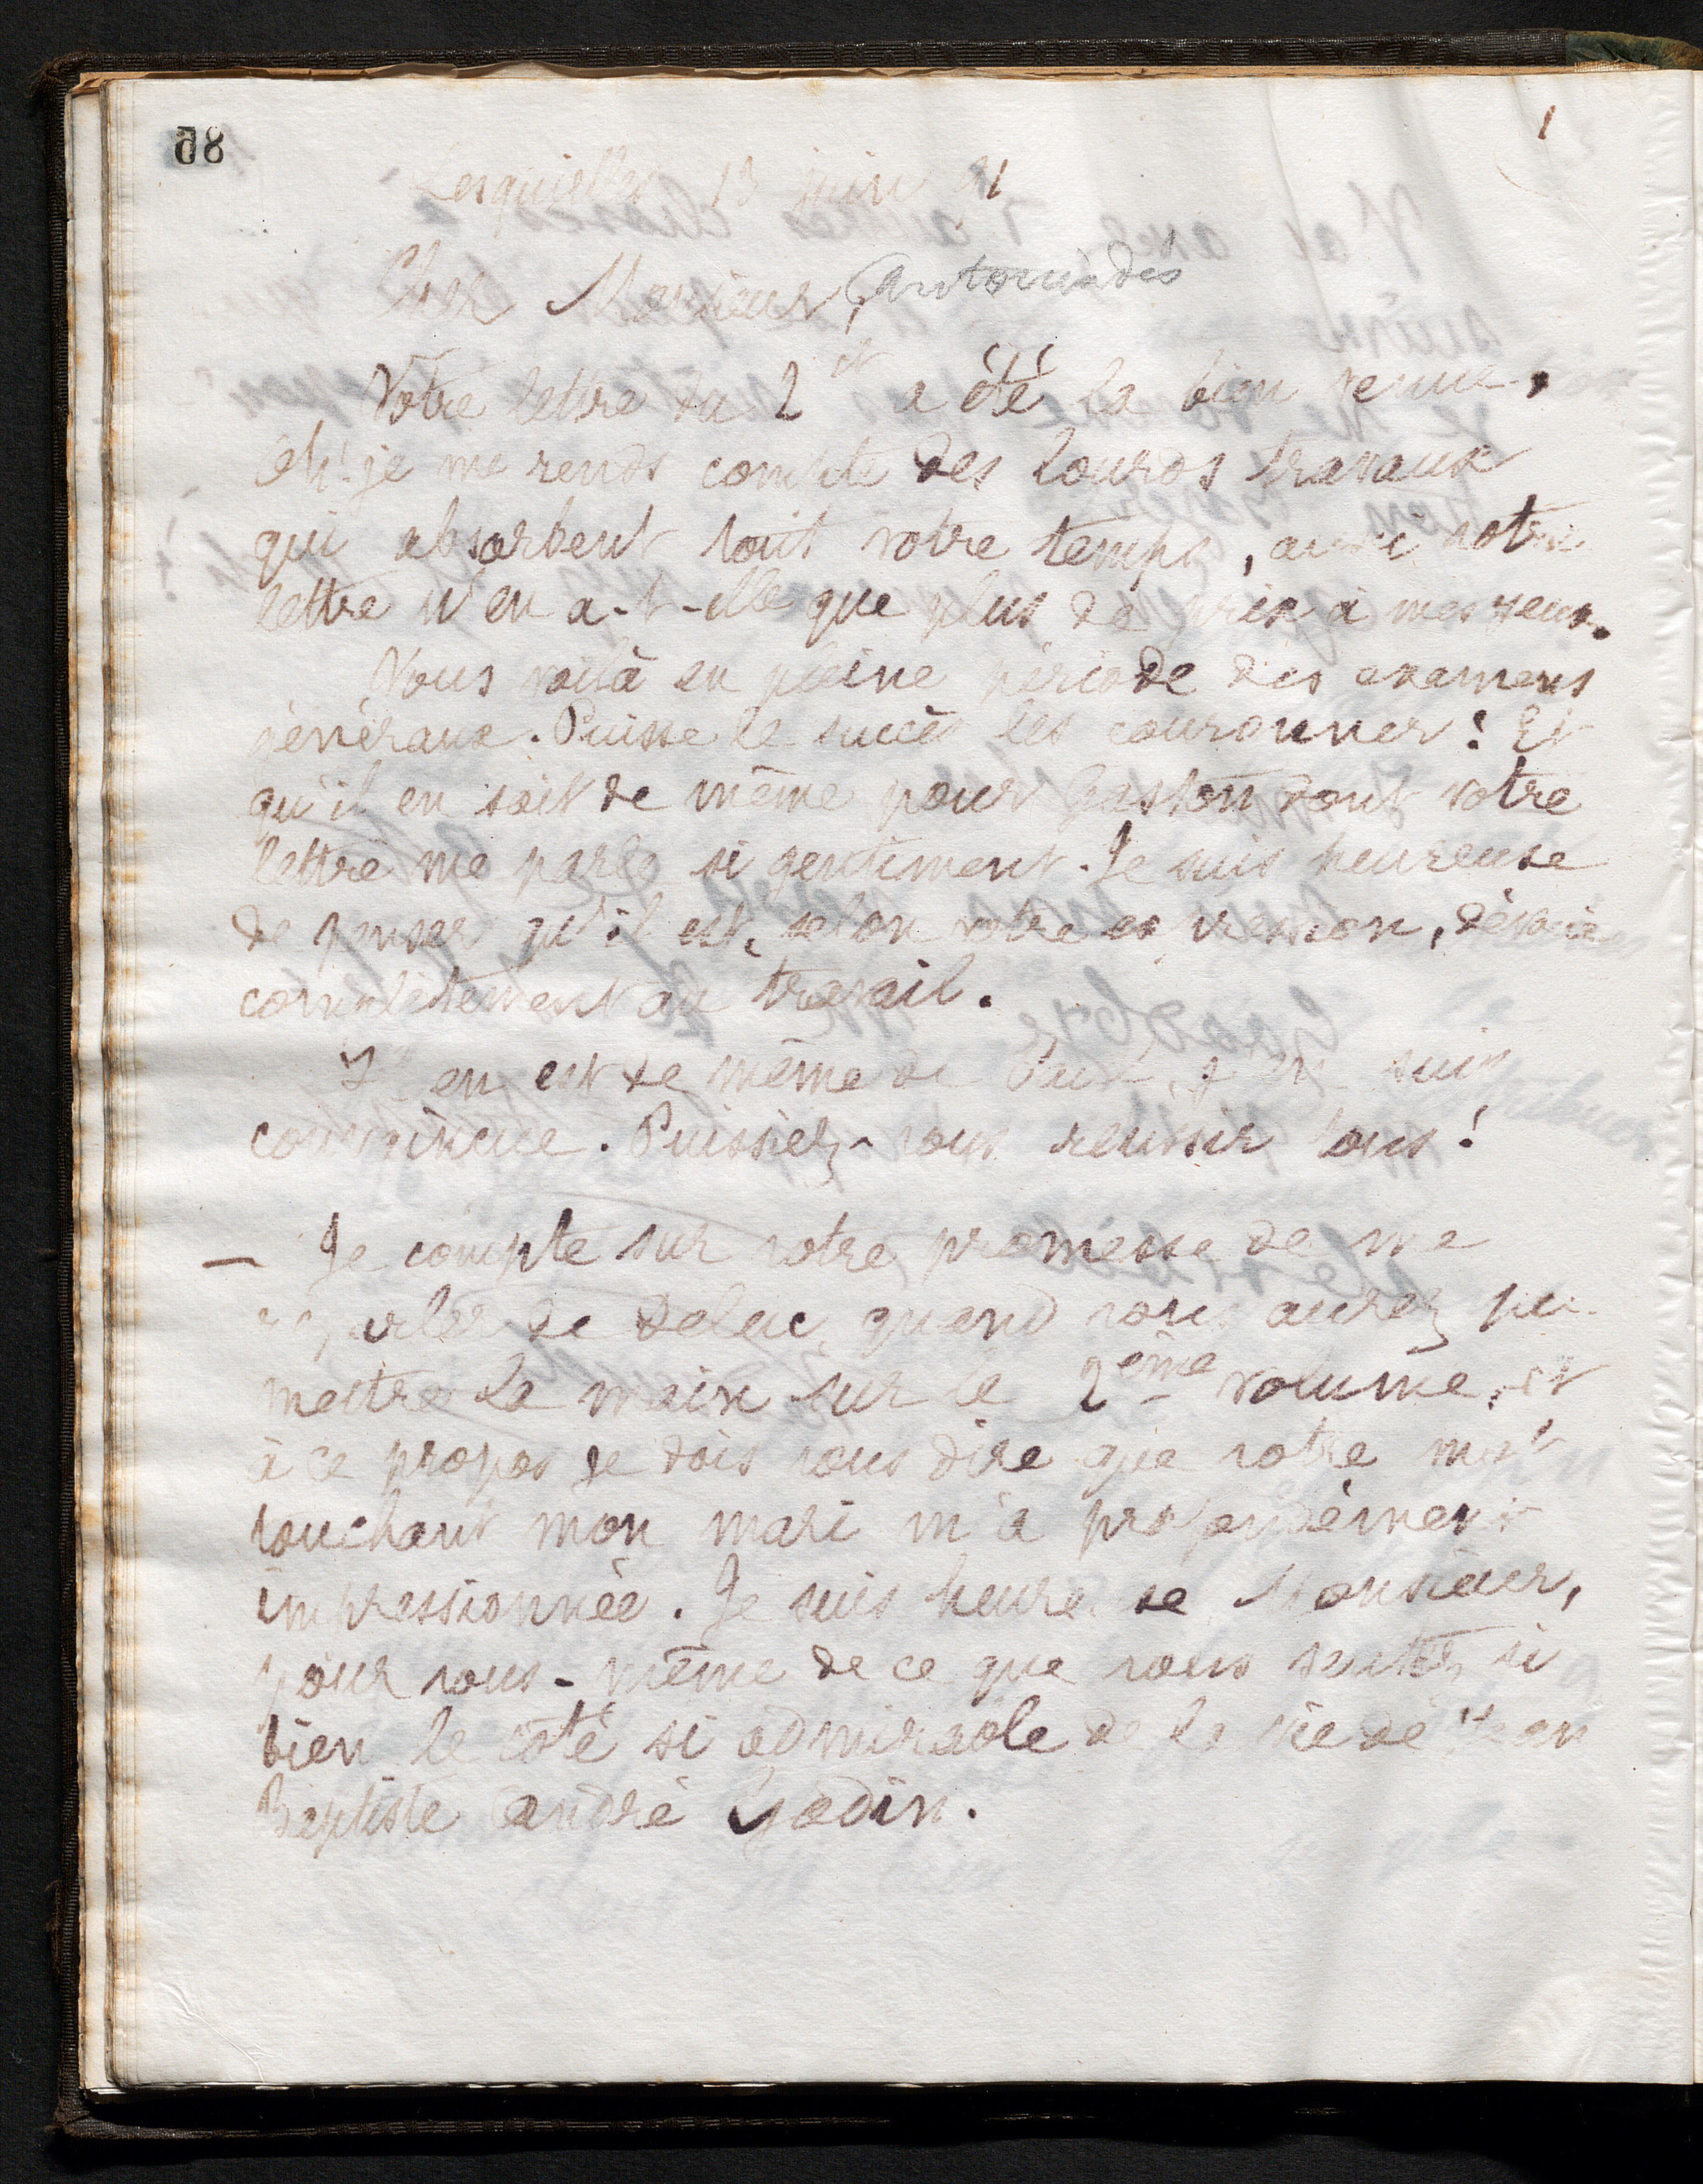 58
1
Lesquielles 13 juin 91
Cher Monsieur, Antoniadès
Votre lettre du 2 et a été la bien venue,
Oh! je me rends compte des lourds travaux
qui absorbent tout votre temps, aussi votre
lettre n'en a-t-elle que plus de prix à mes yeux.
Vous voilà en pleine période des examens
généraux. Puisse le succès les couronner! Et
qu'il en soit de même pour Gaston dont votre
lettre me parle si gentiment. Je suis heureuse
de penser qu'il est, selon votre expression, dévoué
complètement au travail.
Il en est de même de j'en suis
convaincue. Puissiez-vous réussir tous!
— Je compte sur votre promesse de me
reparler de Deluc quand vous aurez pu
mettre la main sur le 2ème volume, et
à ce propos je dois vous dire que votre mot
touchant mon mari m'a profondément
impressionnée. Je suis heureuse Monsieur,
pour vous-même de ce que vous sentez si
bien le côté si admirable de la vie de Jean
Baptiste André Godin.